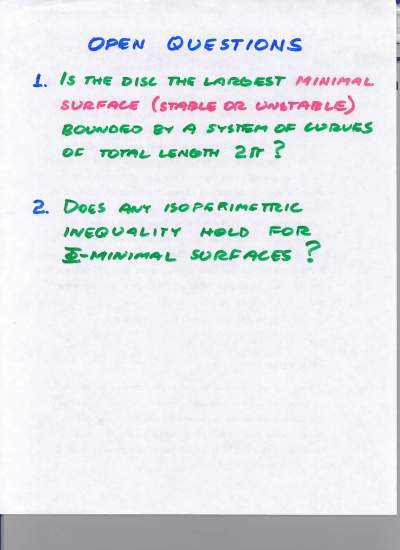 OPEN QUESTIONS
1. IS THE DISC THE LARGEST MINIMAL
SURFACE (STABLE OR UNSTABLE)
BOUNDED BY A SYSTEM OF CURVES
OF TOTAL LENGTH 2π?
2. DOES ANY ISOPERIMETRIC
INEQUALITY HOLD FOR
Φ-MINIMAL SURFACES?